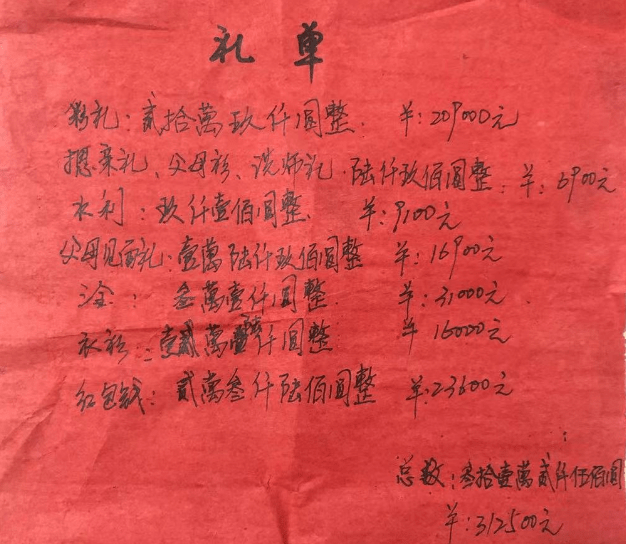 礼单
彩礼：贰拾萬玖仟圆整. 羊：209000元
礼、父母衫、谢师礼.陆仟玖佰圆整. 羊：6900元
水利：玖仟壹佰圆整. 羊：9100元
父母见面礼：壹萬陆仟玖佰圆整 羊：16900元
金： 叁萬壹仟圆整. 羊：31000元.
衣衫：壹萬陆仟圆整 羊 16000元
红包钱：贰萬叁仟陆佰圆整 羊：23600元
总数：叁拾壹萬贰仟伍佰圆
羊：312500元